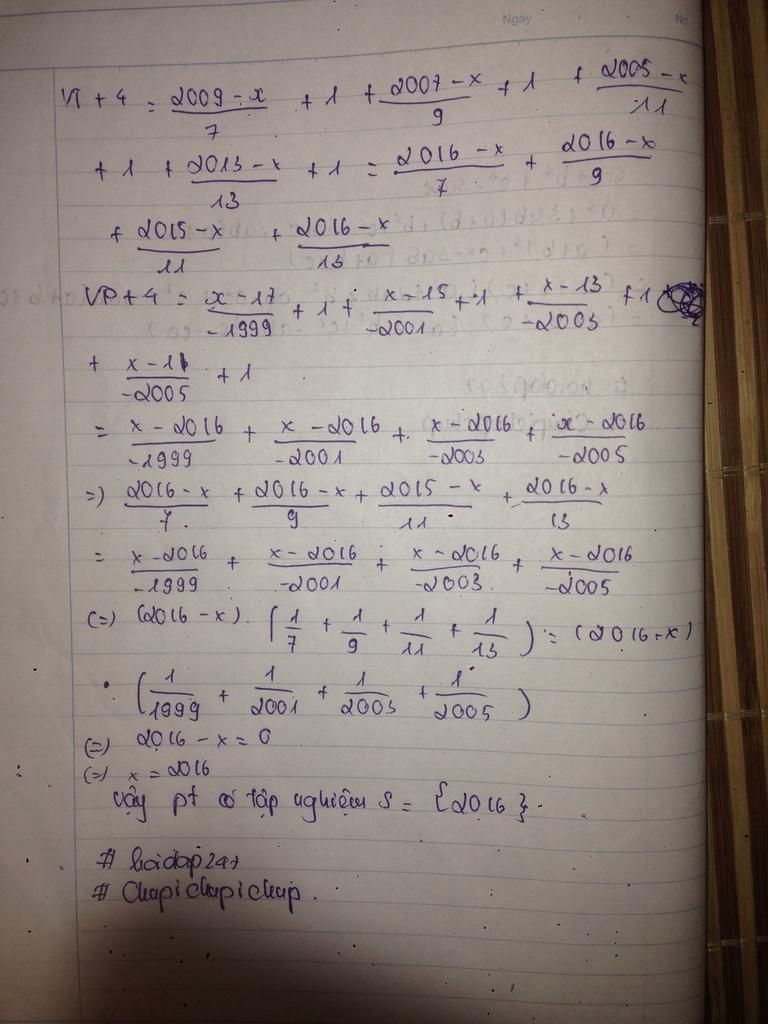 Ngày No.
VT + 4 = \frac{2009 - x}{7} + 1 + \frac{2007 - x}{9} + 1 + \frac{2005 - x}{11}
+ 1 + \frac{2013 - x}{13} + 1 = \frac{2016 - x}{7} + \frac{2016 - x}{9}
+ \frac{2015 - x}{11} + \frac{2016 - x}{13}
VP + 4 = \frac{x - 17}{-1999} + 1 + \frac{x - 15}{-2001} + 1 + \frac{x - 13}{-2003} + 1
+ \frac{x - 11}{-2005} + 1
= \frac{x - 2016}{-1999} + \frac{x - 2016}{-2001} + \frac{x - 2016}{-2003} + \frac{x - 2016}{-2005}
=) \frac{2016 - x}{7} + \frac{2016 - x}{9} + \frac{2015 - x}{11} + \frac{2016 - x}{13}
= \frac{x - 2016}{-1999} + \frac{x - 2016}{-2001} + \frac{x - 2016}{-2003} + \frac{x - 2016}{-2005}
(=) (2016 - x) . (\frac{1}{7} + \frac{1}{9} + \frac{1}{11} + \frac{1}{13}) = (2016 - x)
. (\frac{1}{1999} + \frac{1}{2001} + \frac{1}{2003} + \frac{1}{2005})
(=) 2016 - x = 0
(=) x = 2016
Vậy pt có tập nghiệm S = {2016}.
# hoidap247
# Chapichapichap.